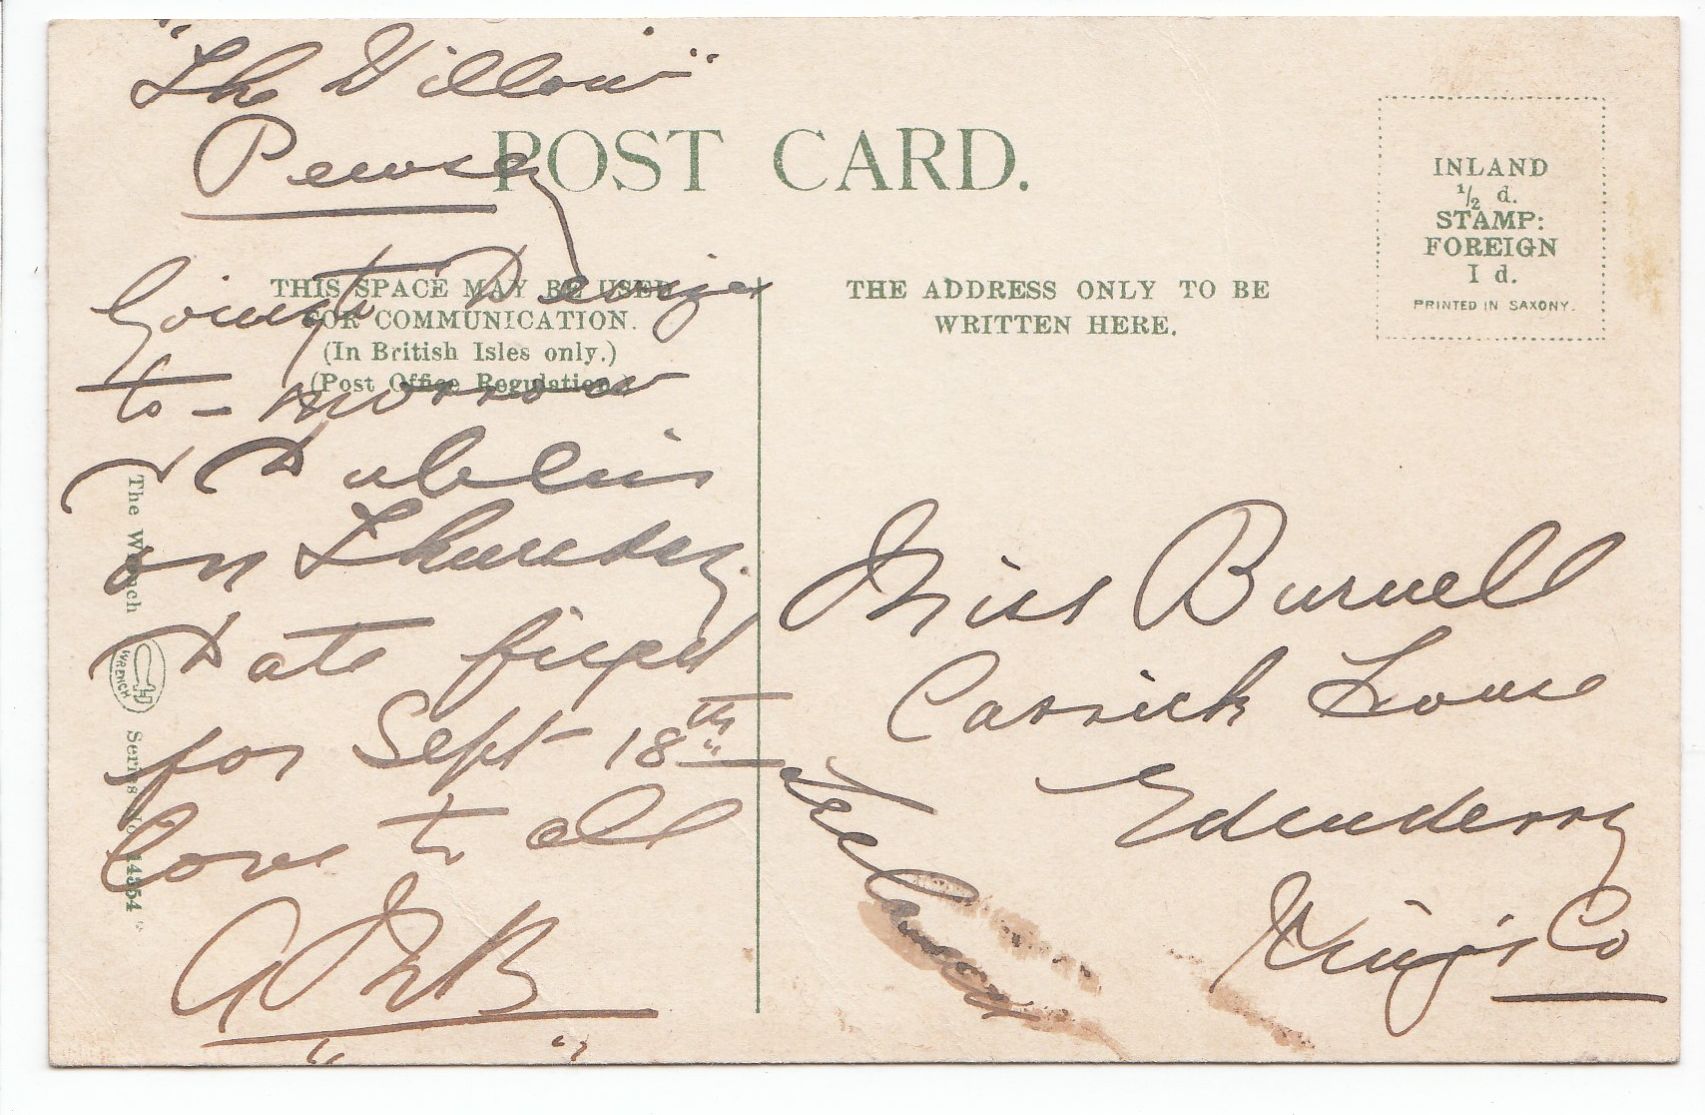 "The Willow"
Pewsey
POST CARD.
THIS SPACE MAY BE USED
FOR COMMUNICATION.
(In British Isles only.)
(Post Office Regulation.)
Going to Devizes
to-morrow
& Dublin
on Thursday.
Date fixed
for Sept 18th
love to all
The Wrench
WRENCH
Series No.
THE ADDRESS ONLY TO BE
WRITTEN HERE.
INLAND
½ d.
STAMP:
FOREIGN
1 d.
PRINTED IN SAXONY.
Miss Burnell
Carrick House
Edenderry
King's Co
Ireland